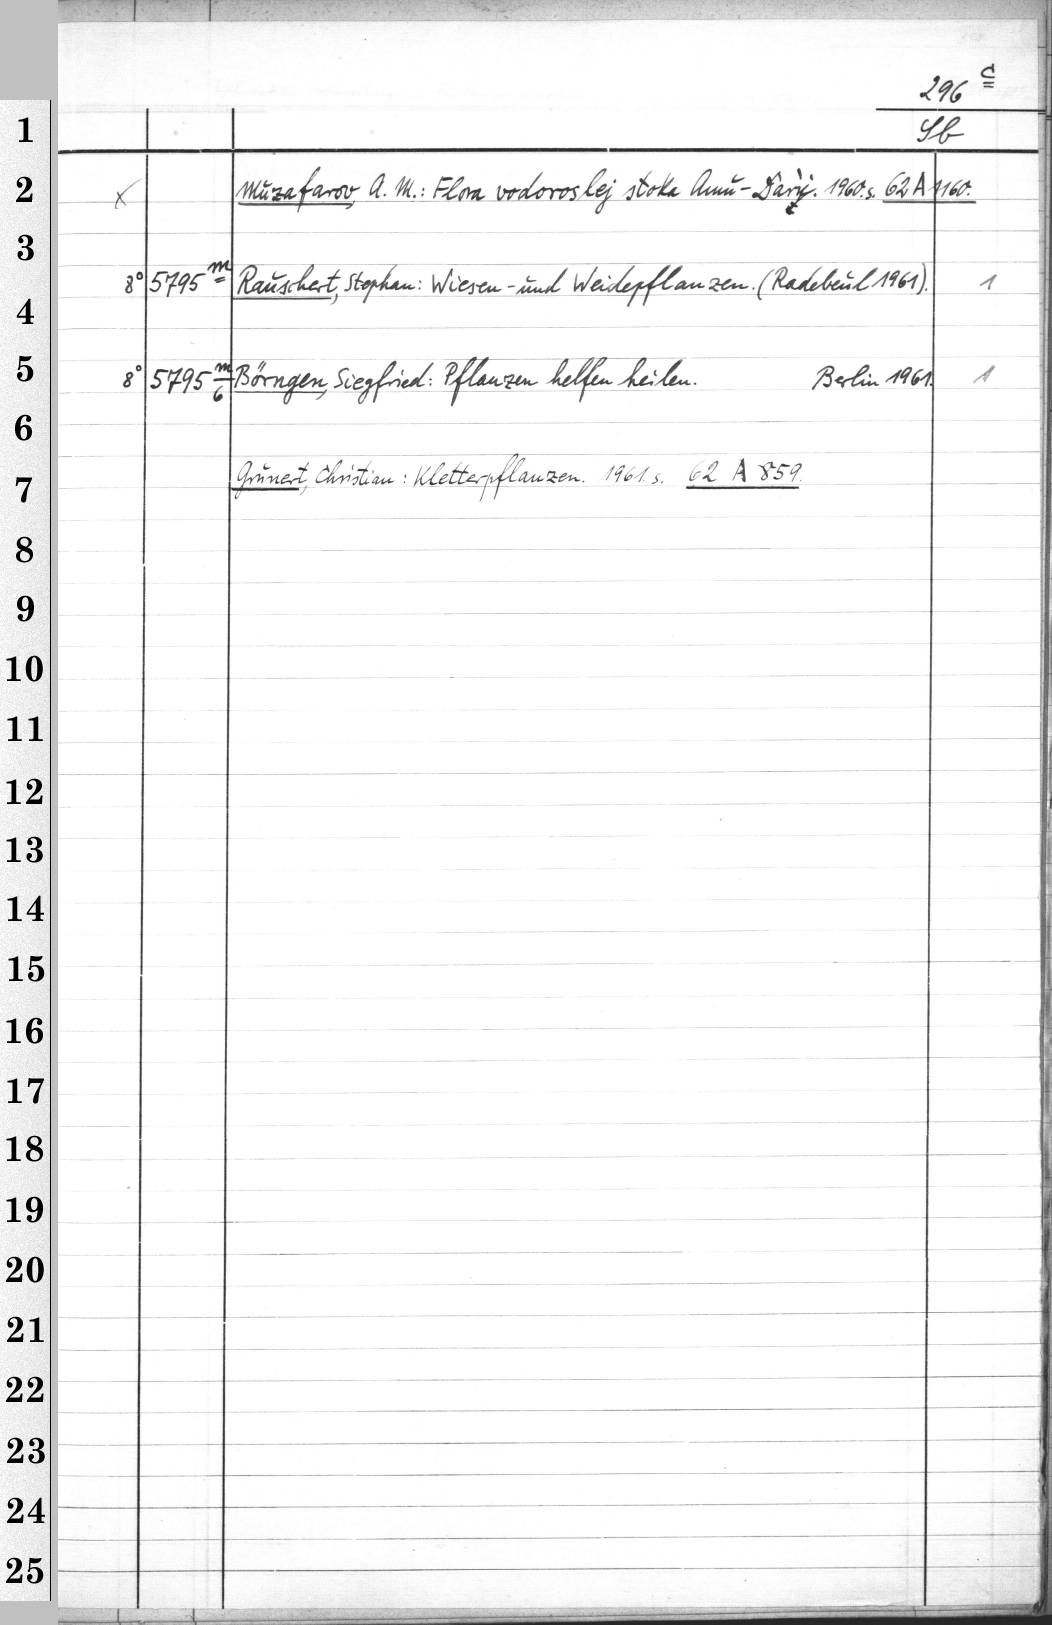 296 c
Sb
1
2 x Muzafarov, A. M.: Flora vodoroslej stoka Amu-Darji. 1960. s. 62 A 1160.
3
8° 5795 m Rauschert, Stephan: Wiesen- und Weidepflanzen. (Radebeul 1961). 1
4
5 8° 5795 m/6 Börngen, Siegfried: Pflanzen helfen heilen. Berlin 1961. 1
6
7 Grunert, Christian: Kletterpflanzen. 1961. s. 62 A 859.
8
9
10
11
12
13
14
15
16
17
18
19
20
21
22
23
24
25